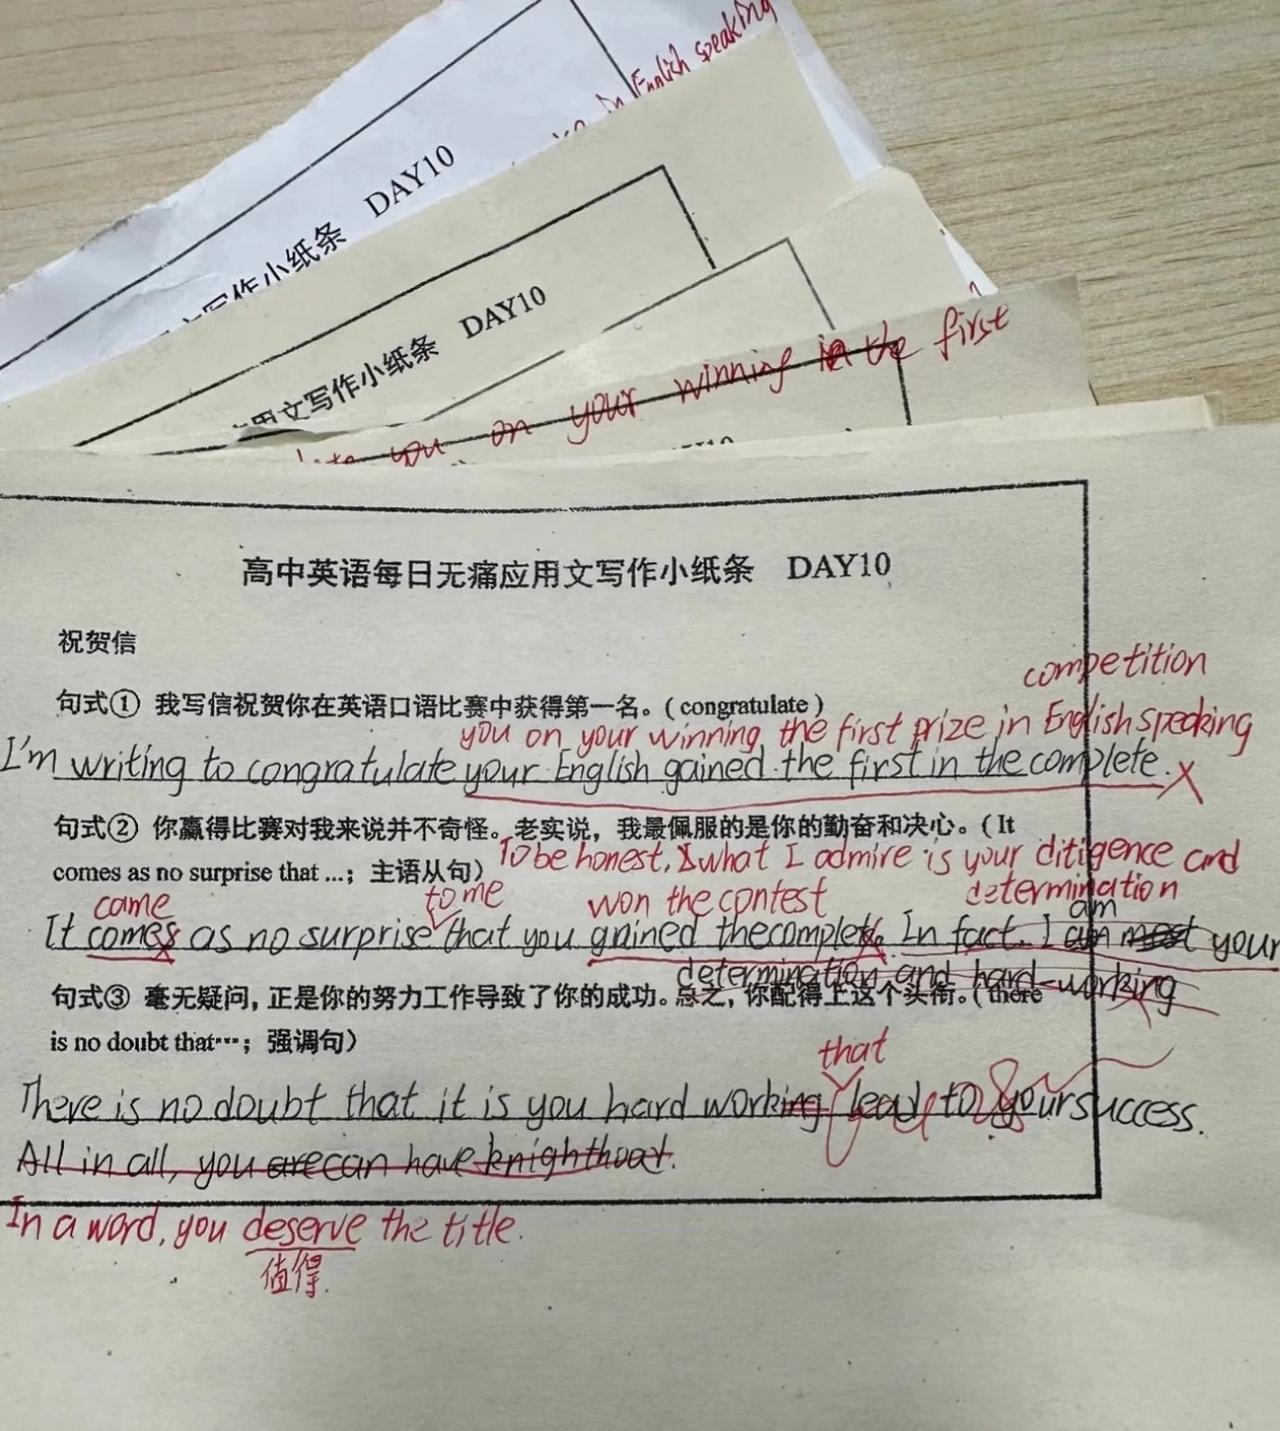 in English speaking
写作小纸条 DAY10
用文写作小纸条 DAY10
you on your winning in the first
高中英语每日无痛应用文写作小纸条 DAY10
祝贺信
competition
句式① 我写信祝贺你在英语口语比赛中获得第一名。(congratulate)
you on your winning the first prize in English speaking
I'm writing to congratulate your English gained the first in the complete.
句式② 你赢得比赛对我来说并不奇怪。老实说，我最佩服的是你的勤奋和决心。(It
comes as no surprise that ...；主语从句)
To be honest, what I admire is your ditigence and
determination
came to me won the contest
am
It comes as no surprise that you gained the complete. In fact. I am most your
determination and hard-working
句式③ 毫无疑问，正是你的努力工作导致了你的成功。总之，你配得上这个头衔。(there
is no doubt that…；强调句)
that
There is no doubt that it is you hard working lead to your success.
All in all, you are can have knighthoot.
In a word, you deserve the title.
值得.